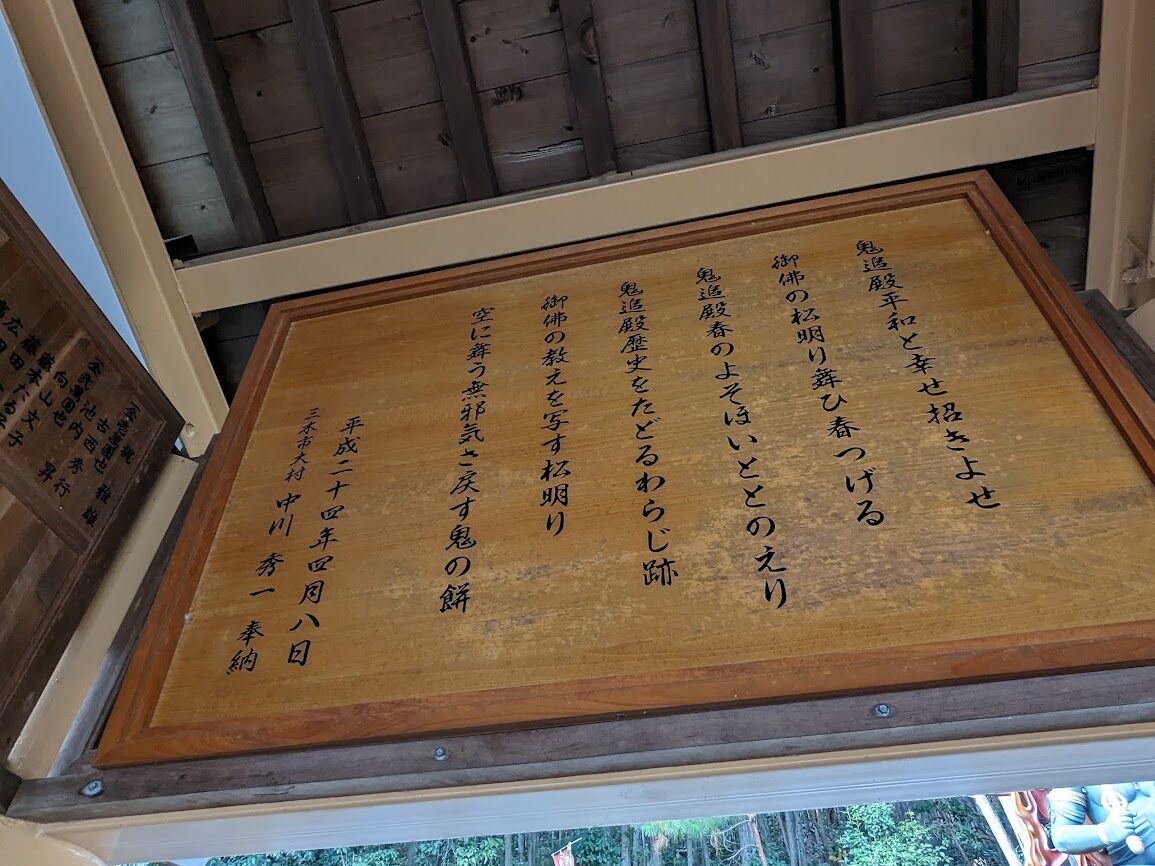 鬼追殿平和と幸せ招きよせ
御佛の松明り舞ひ春つげる
鬼追殿春のよそほいととのえり
鬼追殿歴史をたどるわらじ跡
御佛の教えを写す松明り
空に舞う無邪気さ戻す鬼の餅
平成二十四年四月八日
三木市大村 中川 秀一 奉納
古西 秀行
池内 昇
向山
藤本 文子